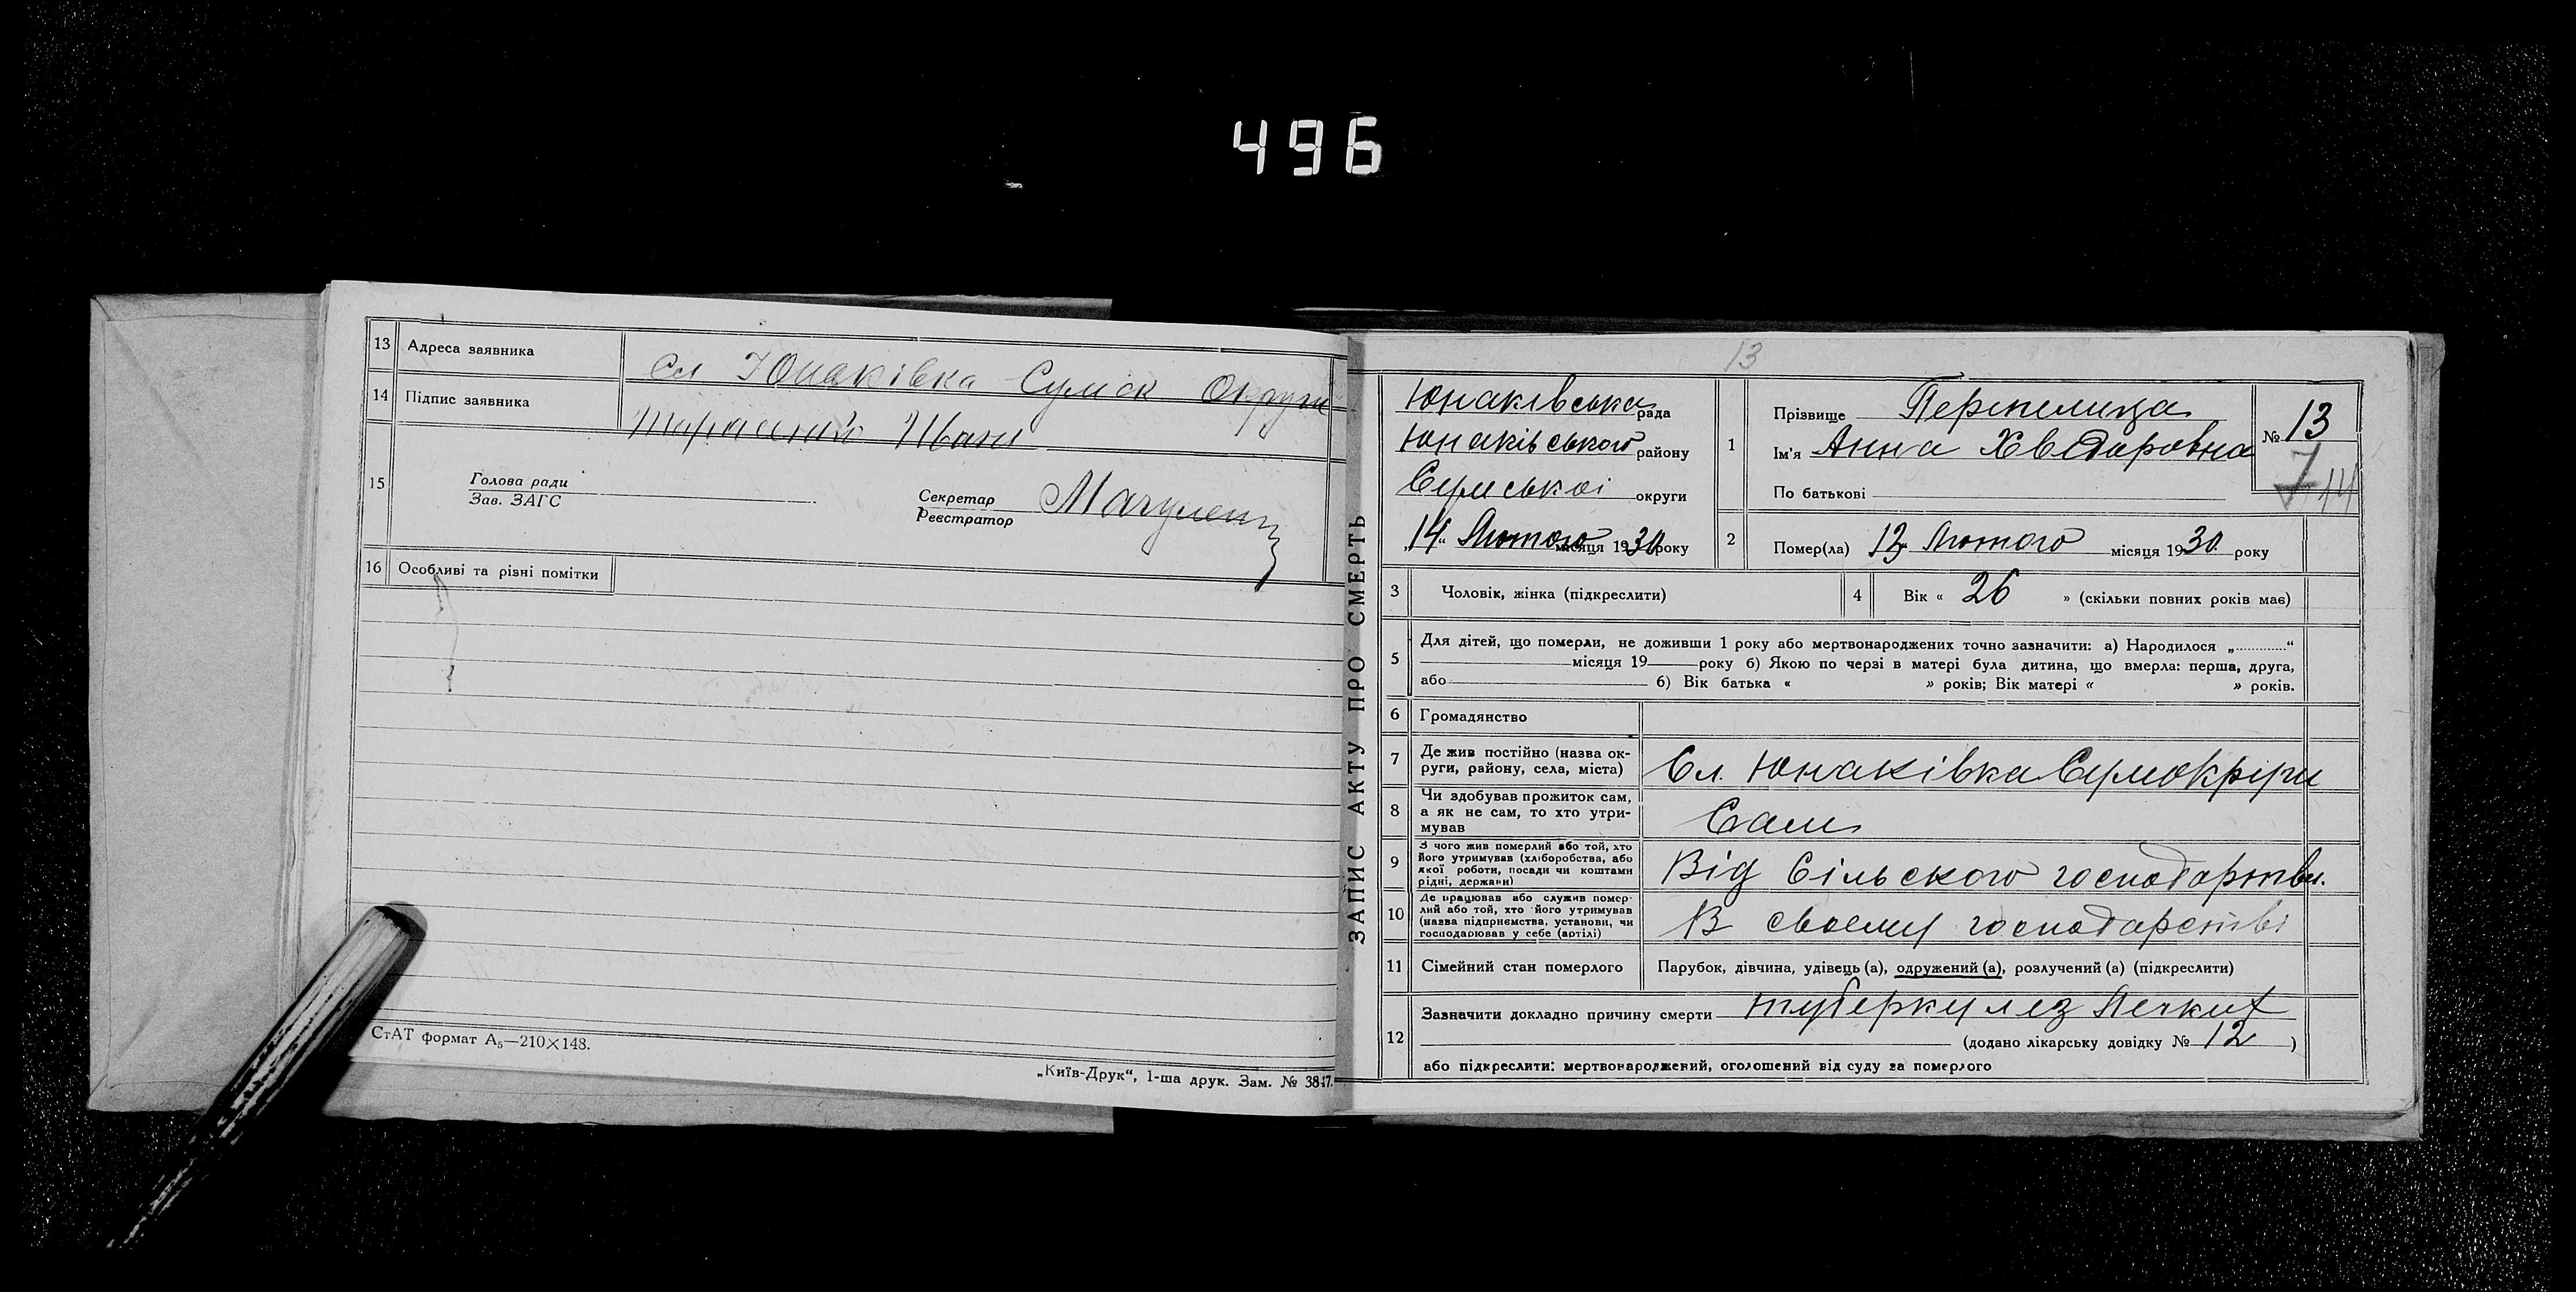 496
13 Адреса заявника Сл Юнаківка Сумск Округи
14 Підпис заявника Тарасенко Иван
15 Голова ради
Зав. ЗАГС
Секретар
Реєстратор
16 Особливі та різні помітки
СтАТ формат А₅—210×148.
„Київ-Друк“, 1-ша друк. Зам. № 3847.
ЗАПИС АКТУ ПРО СМЕРТЬ
13
Юнаківська рада
Юнаківського району
Сумської округи
„14“ Лютого місяця 1930 року
1 Прізвище Перепелица
Ім'я Анна Хведоровна
По батькові
№ 13
7 14
2 Помер(ла) 12 Лютого місяця 1930 року
3 Чоловік, жінка (підкреслити) 4 Вік « 26 » (скільки повних років має)
5 Для дітей, що померли, не доживши 1 року або мертвонароджених точно зазначити: а) Народилося „............“
місяця 19 року б) Якою по черзі в матері була дитина, що вмерла: перша, друга,
або б) Вік батька « » років; Вік матері « » років.
6 Громадянство
7 Де жив постійно (назва ок-
руги, району, села, міста) Сл. Юнаківка Сумокруги
8 Чи здобував прожиток сам,
а як не сам, то хто утри-
мував Сам
9 З чого жив померлий або той, хто
його утримував (хліборобства, або
якої роботи, посади чи коштами
рідні, держави) Від Сільского господарства.
10 Де працював або служив помер-
лий або той, хто його утримував
(назва підприємства, установи, чи
господарював у себе (артілі) В своему господарстві
11 Сімейний стан померлого Парубок, дівчина, удівець (а), одружений (а), розлучений (а) (підкреслити)
12 Зазначити докладно причину смерти туберкулез Легких
(додано лікарську довідку № 12 )
або підкреслити: мертвонароджений, оголошений від суду за померлого